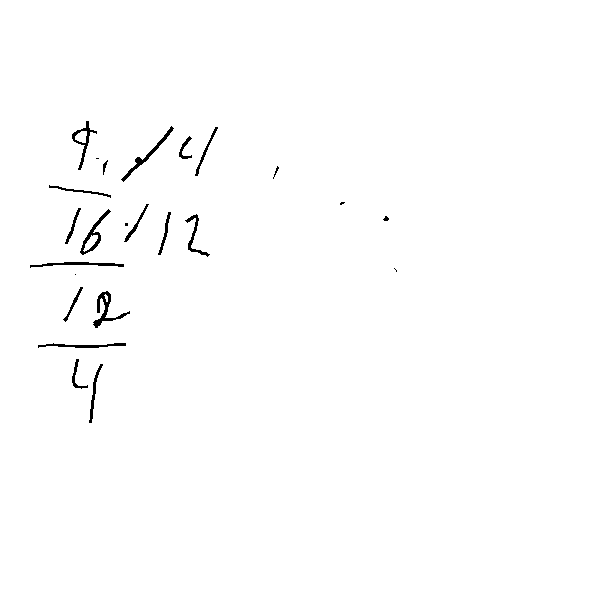 9 / 4
16 / 12
12
4